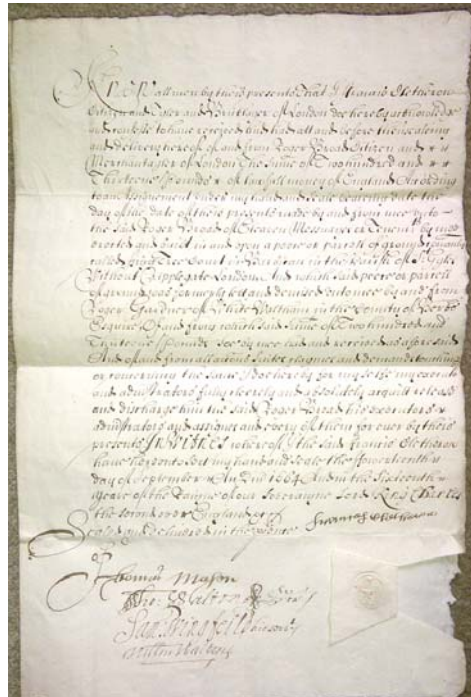 Know all men by theis presents That I Francis Oletheron
Citizen and Tyler and Bricklayer of London doe hereby acknowledge
and confesse to have received and had att and before thensealing
and delivery hereof of and from Roger Broad Citizen and
Merchantaylor of London The Summe of Twohundred and
Thirteene Pounds of lawfull money of England According
to an Assignement under my hand and seale bearing date the
day of the date of theis presents made by and from mee unto
the said Roger Broad of Eleaven Messuages or Tenemts by mee
erected and built in and upon a peece or parcell of ground
called Tree Court in in the Parish of St Gyles
Without Cripplegate London And which said peece or parcell
of ground was formerly lett and demised unto mee by and from
Roger Gardner of White Waltham in the County of Berks
Esquire Of and from which said Summe of Twohundred and
Thirteene Pounds soe by mee had and received as aforesaid
And of and from all accons Suites and demands touching
or concerning the same I doe hereby for my selfe my executors
and administrators fully cleerely and absolutely acquitt release
and discharge him the said Roger Broad his executors
administrators and assignes and every of them for ever by theis
presents In Witnes whereof I the said Francis Oletheron
have hereunto sett my hand and seale the
day of September An Dni 1664 And in the Sixteenth
yeare of the Raigne of our Soveraigne Lord King Charles
the second over England &c
Sealed and delivered in the presence
of
Thomas Mason
Tho: Walton
Sam: Wingfeild